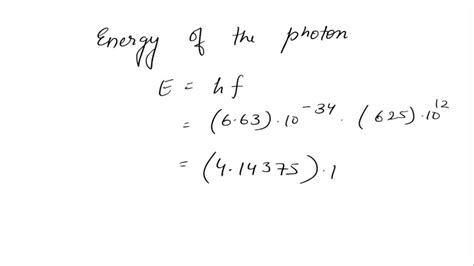 Energy of the photon
E = hf
= (6.63)·10^-34 · (625)·10^12
= (4.14375)·1